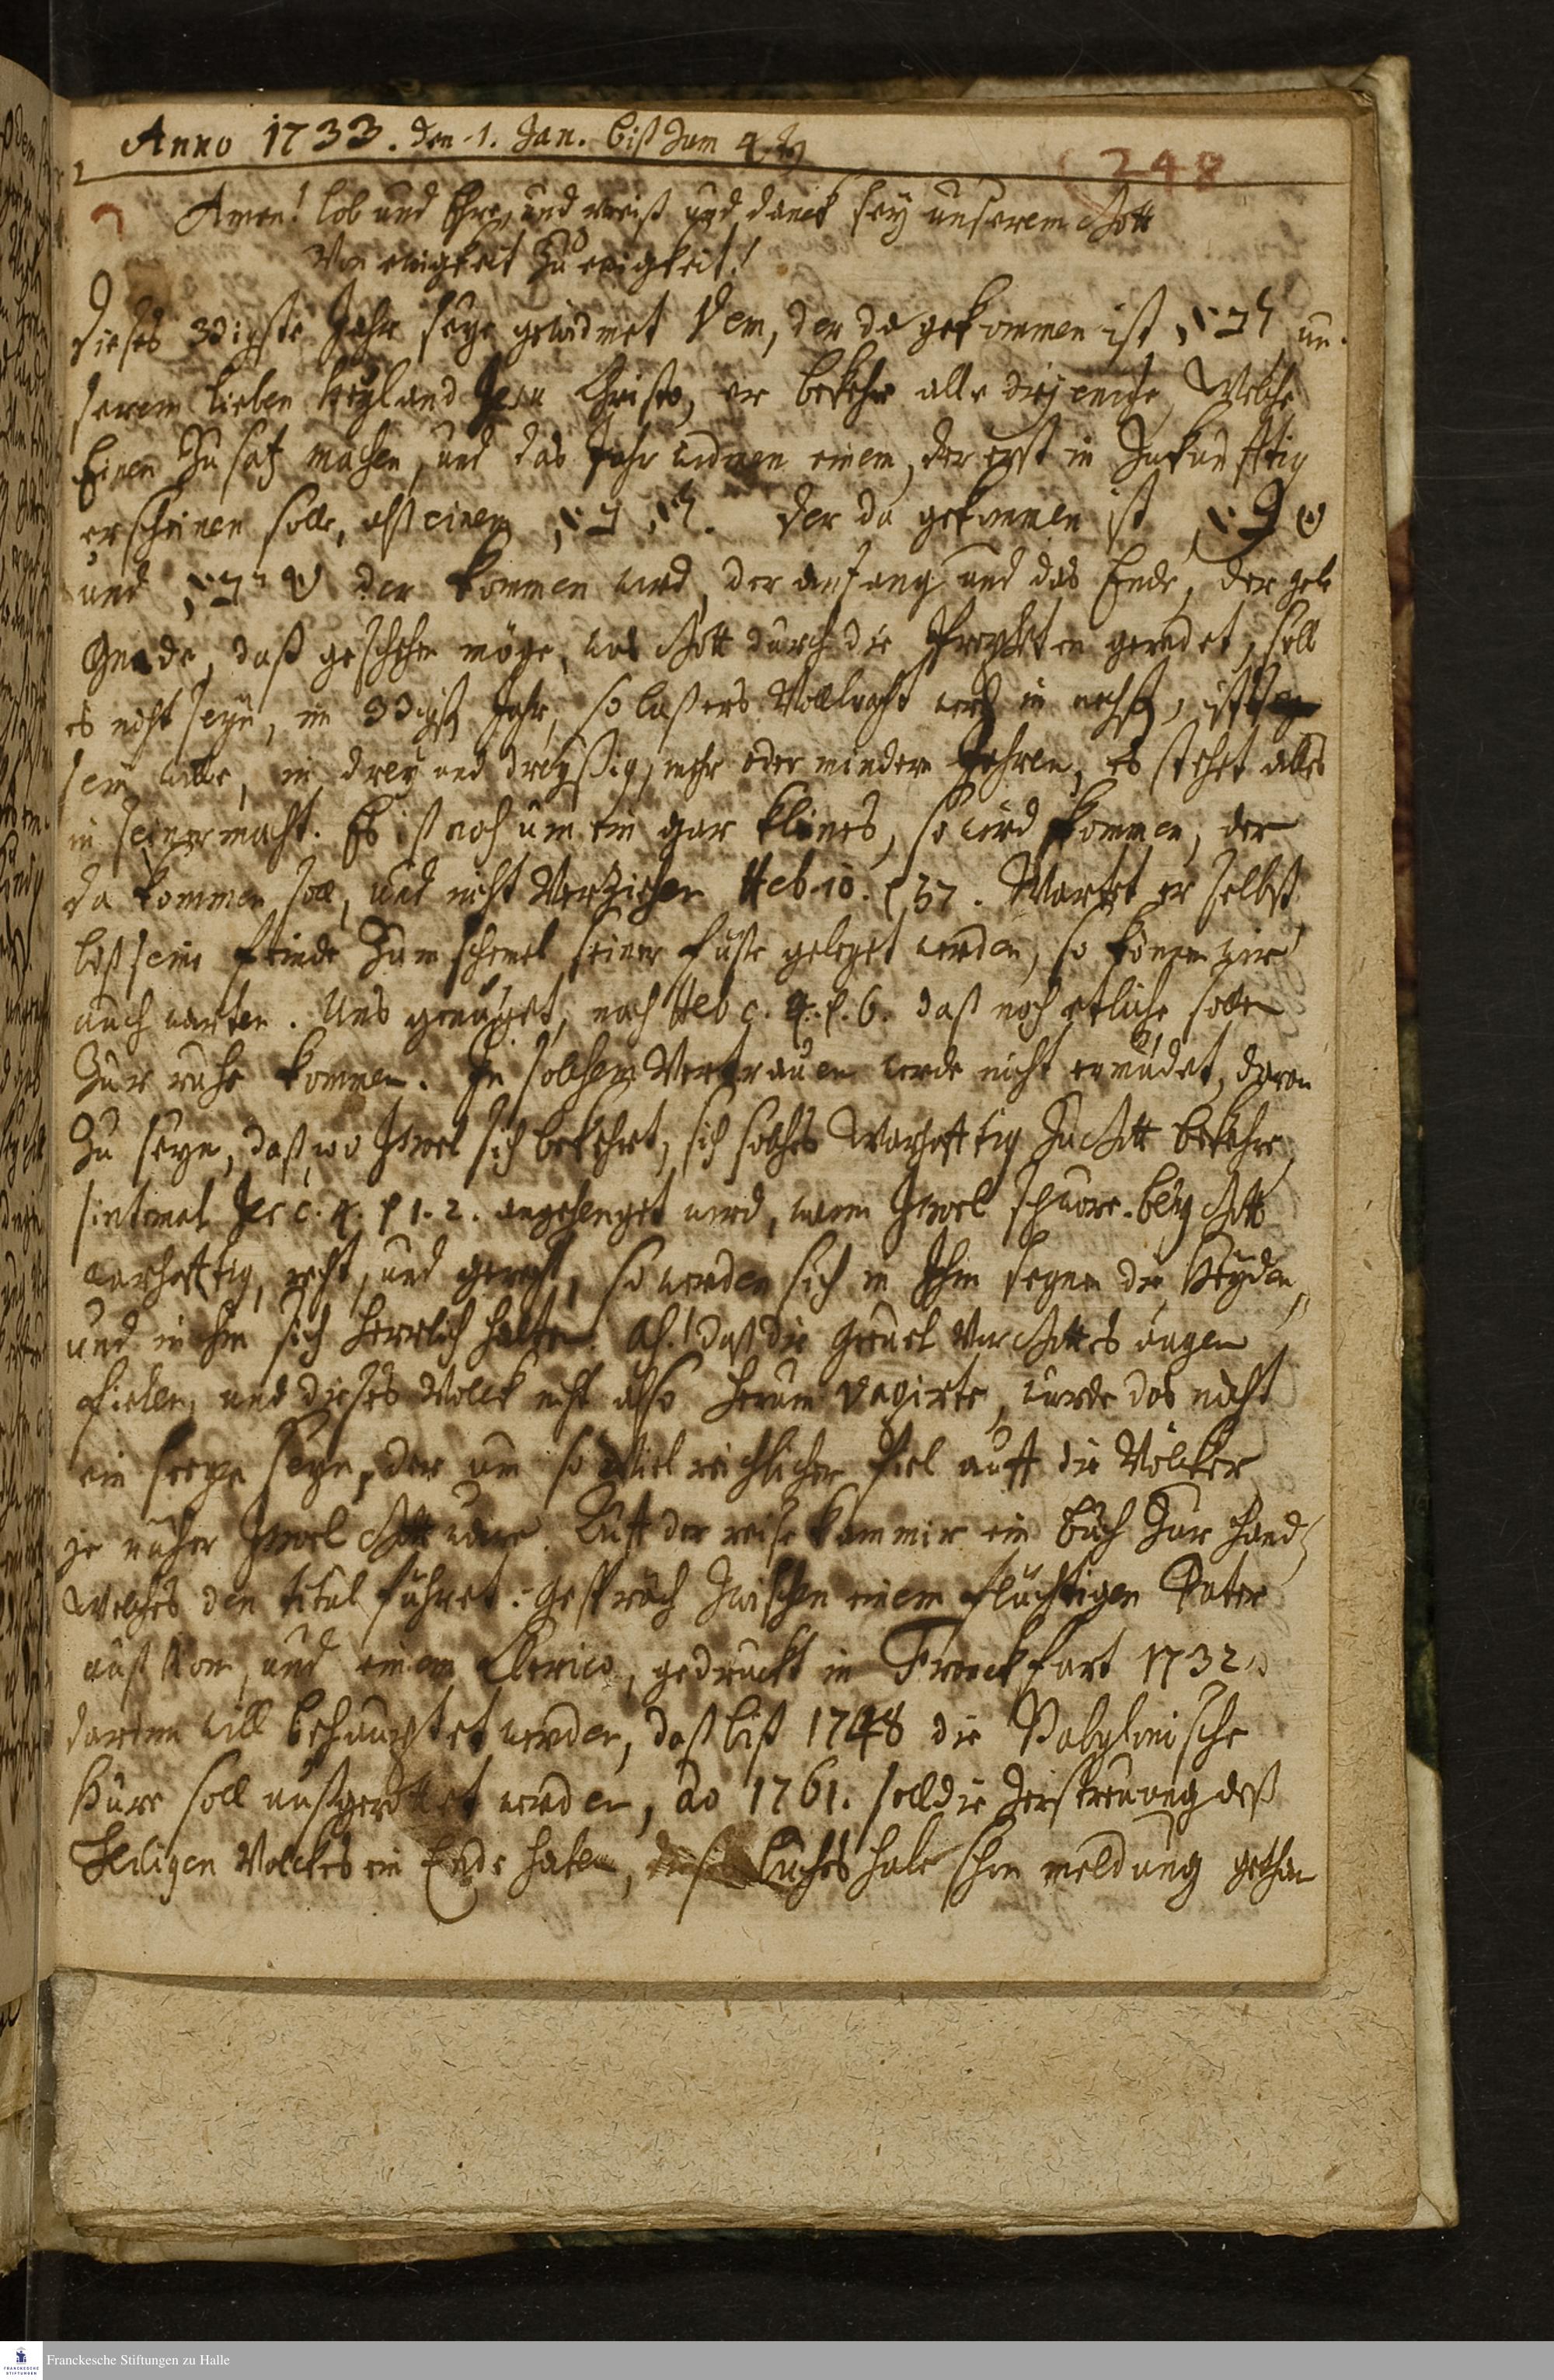 Anno 1733. den 1. Jan. biß zum 4 ten
248
Amen! lob und Ehre, und preiß und danck sey unserem Gott
Von ewigkeit zu ewigkeit!
Dieses 33igste Jahr seye gewidmet Dem, der da gekommen ist un-
serem lieben Heyland Jesu Christo, er bekehr alle diejenige, Welche
Einen Zusatz machen, und das Jahr widmen einem, der erst in Zukunfftig
erscheinen solle, alß einem der da gekommen ist
und der kommen wird, der anfang und das Ende, der gebe
Gnade, daß geschehen möge, was Gott durch die Propheten geredet, soll
es nicht seyn, im 33igst Jahr, so laß ers Vollbracht werd in
sein wille, in drey und dreyssig, mehr oder mindern Jahren, es stehet alles
in seiner macht. Es ist noch um ein gar kleines, so wird kommen, der
da kommen soll, und nicht Verziehen Heb. 10. v 37. Wartet er selbst
biß seine feinde Zum schemel seiner füsse geleget werden, so können wir
auch warten. Uns genüget, nach Heb c. 4. v. 6. daß noch etliche sollen
Zur ruhe kommen. In solchem Vertrauen werde nicht ermüdet, daran
Zu seyn, daß wo Israel sich bekehrt, sich solches Warhafftig zu Gott bekehre,
sintemal Jer c. 4. v 1. 2. angehenget wird, wenn Israel schwöre bey Gott
warhafftig, recht, und gerecht, so werden sich in Ihm segnen die Heyden,
und in ihm sich herrlich halten. Ach! daß die Greuel Vor Gottes augen
fielen, und dieses Volck nicht also herum vagirte, wurde das nicht
ein seegen seyn, der um so Viel reichlicher fiel auff die Völcker
je näher Israel Gott wäre. Auff der reise kam mir ein buch Zur hand
welches den titul führet: Gespräch zwischen einem flüchtigen Pater
auß Rom, und einem Clerico, gedruckt in Franckfurt 1732.
darinn will behauptet werden, daß biß 1748 die Babylonische
Hure soll außgerottet werden, ao 1761. soll die Zerstreuung deß
Heiligen Volckes ein Ende haben, dieses buches habe schon meldung gethan
Franckesche Stiftungen zu Halle